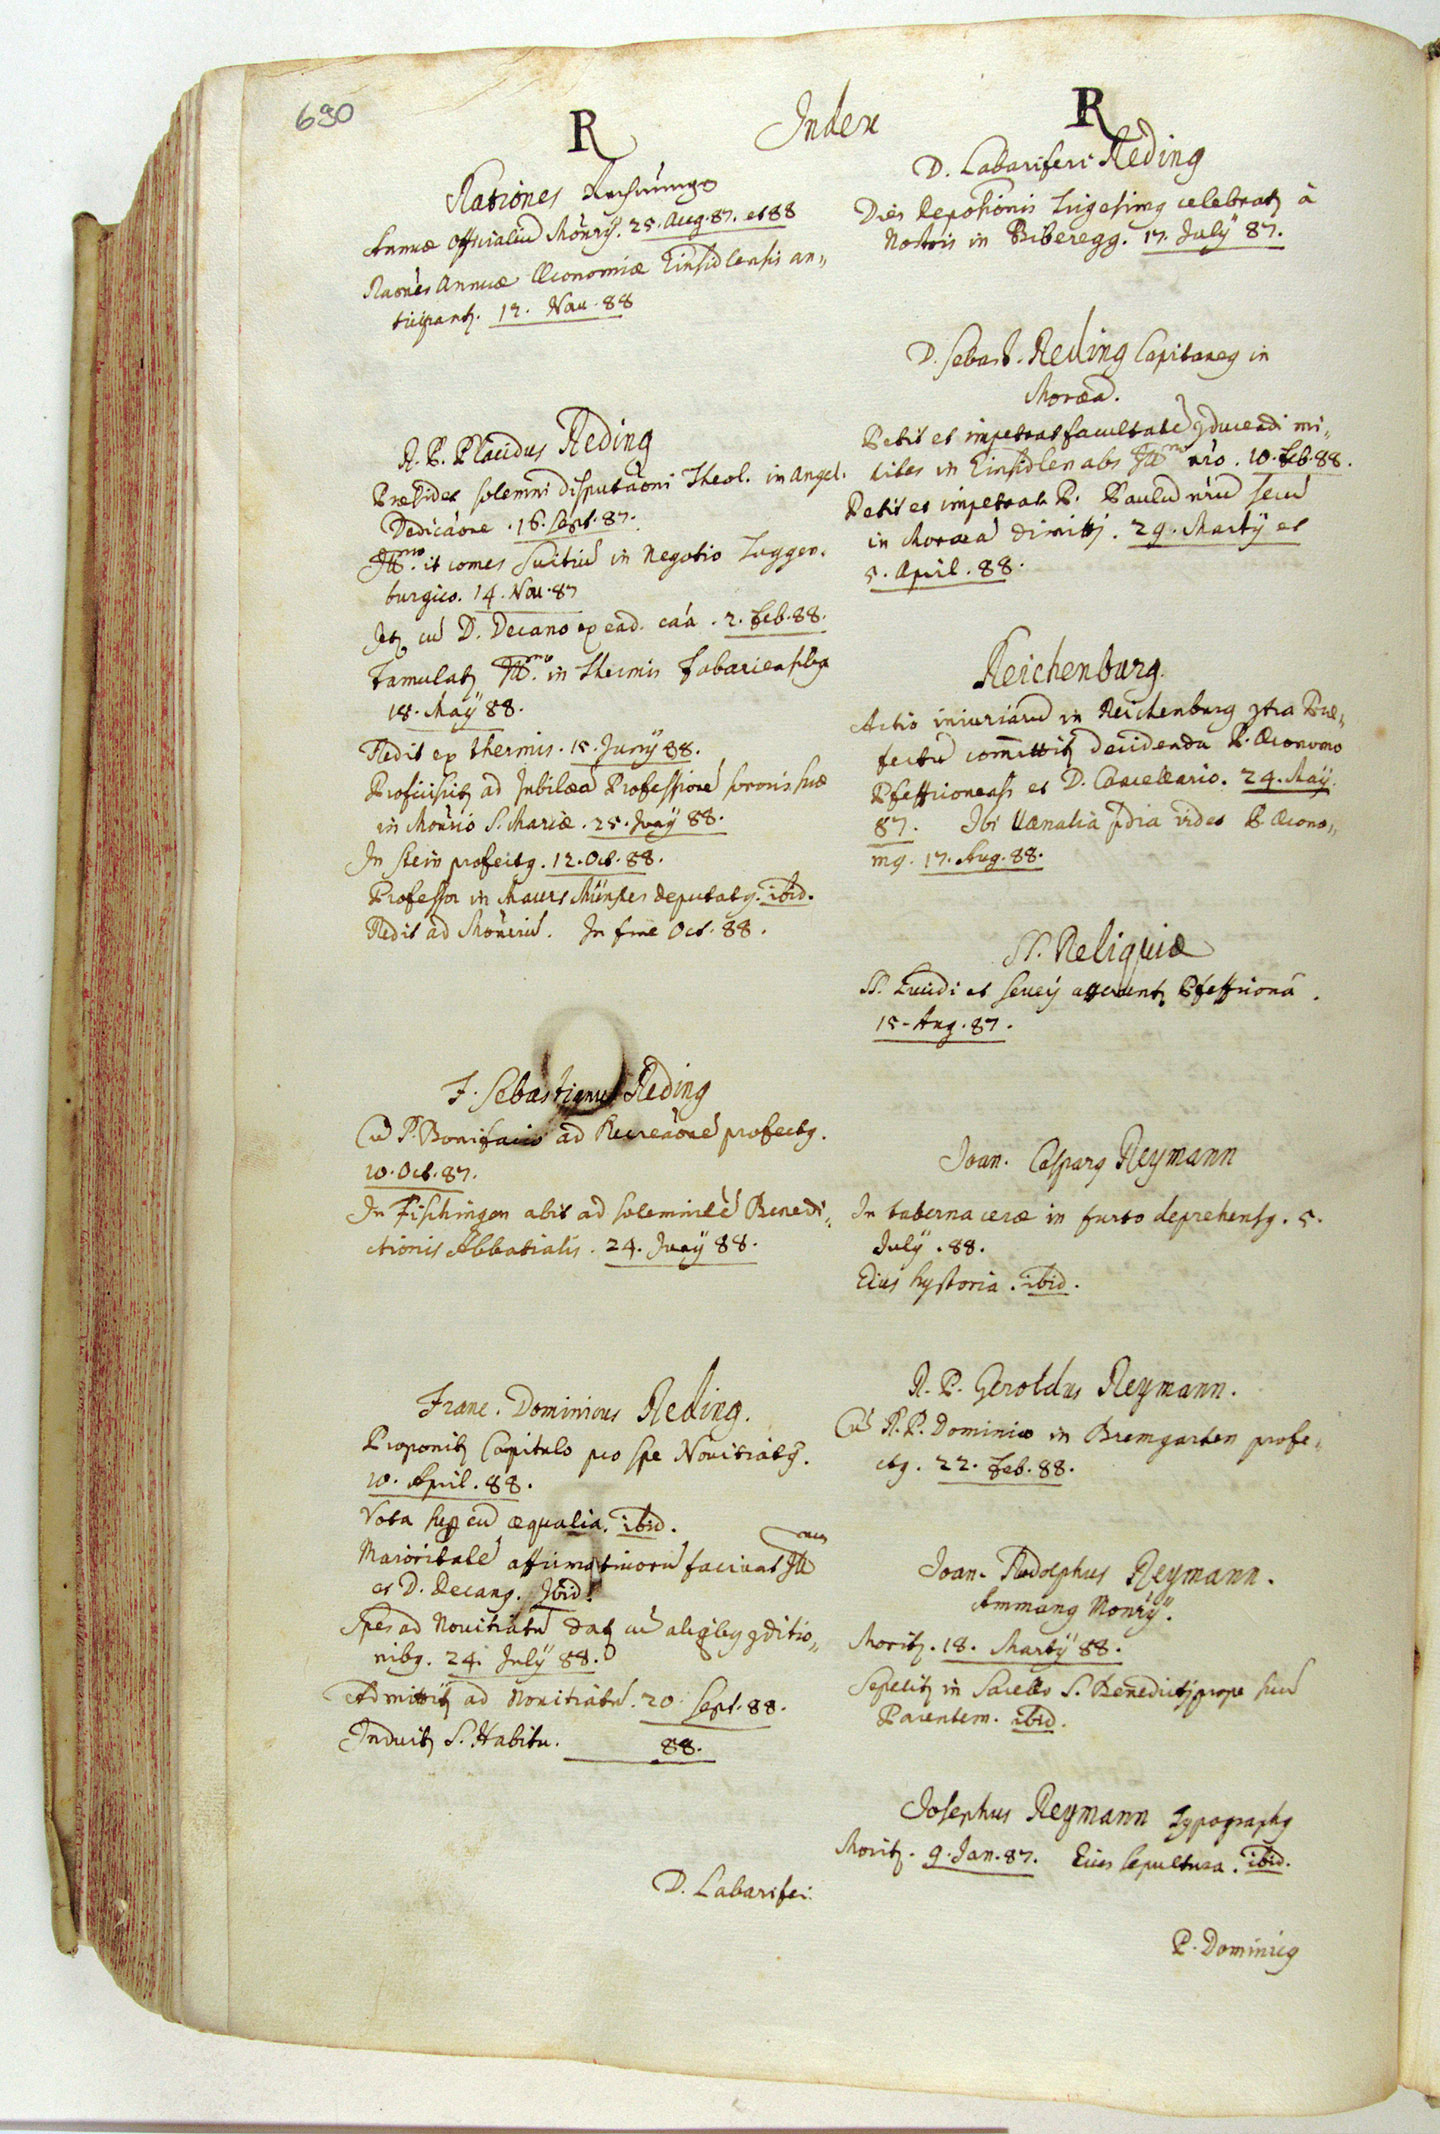 690
R Index R
Rationes Rechnunge
Annuæ Officialiū Mon̄rij. 25. Aug. 87. et 88
Rao͞nes Annuæ Œconomiæ Einsidlensis an„
ticipantꝫ. 12. Nov. 88
R. P. Placidus Reding
Præsidet solemni disputaōni Theol. in Angel.
Dedicaōne. 16. Sept. 87.
Illmo. it comes Suitiū in negotio Toggen„
burgico. 14. Nov. 87
Itꝫ cū D. Decano ex ead. caā. 2. Feb. 88.
Famulatꝫ Illmo. in Thermis Fabariensibꝫ
18. Maÿ 88.
Redit ex thermis. 15. Junÿ 88.
Proficiscitꝫ ad Jubilæā Professionē sororis suæ
in Mon̄rio S. Mariæ. 25. Junÿ 88.
In Stein profectꝯ. 12. Oct. 88.
Professor in Maurs Münster deputatꝯ. ibid.
Redit ad Mon̄riū. In fine Oct. 88.
F. Sebastianus Reding
Cū P. Bonifacio ad Recreaōnē profectꝯ.
10. Oct. 87.
In Fischingen abit ad solemnitē Benedi„
ctionis Abbatialis. 24. Junÿ 88.
Franc. Dominicus Reding.
Proponitꝫ Capitulo pro spe Novitiatꝯ.
10. April. 88.
Vota sup eū æqualia. ibid.
Maioritatē affirmativorū faciunt Illmus
et D. Decanꝯ. Ibid.
Spes ad Novitiatū datꝫ cū aliqbꝯ ꝯditio„
nibꝯ. 24. Julÿ 88.
Admittitꝫ ad Novitiatū. 20. Sept. 88.
Induitꝫ S. Habitu. 88.
D. Labarifei.
D. Labariferi Reding
Dies depositionis Trigesimꝯ celebratꝫ à
Nostris in Biberegg. 17. Julÿ 87.
D. Sebast. Reding Capitaneꝯ in
Moræa.
Petit et impetrat facultatē ꝯducendi mi„
lites in Einsidlen abs Illmo nr̄o. 10. Feb. 88.
Petit et impetrat P. Paulū nr̄ū secū
in Moræā dimitti. 29. Martÿ et
5. April. 88.
Reichenburg.
Actio iniuriarū in Reichenburg ꝯtra Præ„
fectū committitꝫ decidenda P. Œconomo
Pfefficonensi et D. Cancellario. 24. Maÿ.
87. Ibi Vænalia p̄dia videt P. Œcono„
mꝯ. 17. Aug. 88.
SS. Reliquiæ
SS. Lucidi et Severj afferuntꝫ Pfefficonā.
15. Aug. 87.
Joan. Casparꝯ Reymann
In taberna ceræ in furto deprehensꝯ. 5.
Julÿ. 88.
Eius hystoria. ibid.
R. P. Geroldus Reymann.
Cū R. P. Dominico in Bremgarten profe„
ctꝯ. 22. Feb. 88.
Joan. Rudolphus Reymann.
Ammanꝯ Mon̄rÿ.
Moritꝫ. 18. Martÿ 88.
Sepelitꝫ in Sacello S. Benedictj prope suū
Parentem. ibid.
Josephus Reymann Typographꝯ
Moritꝫ. 9. Jan. 87. Eius sepultura. ibid.
P. Dominicꝯ